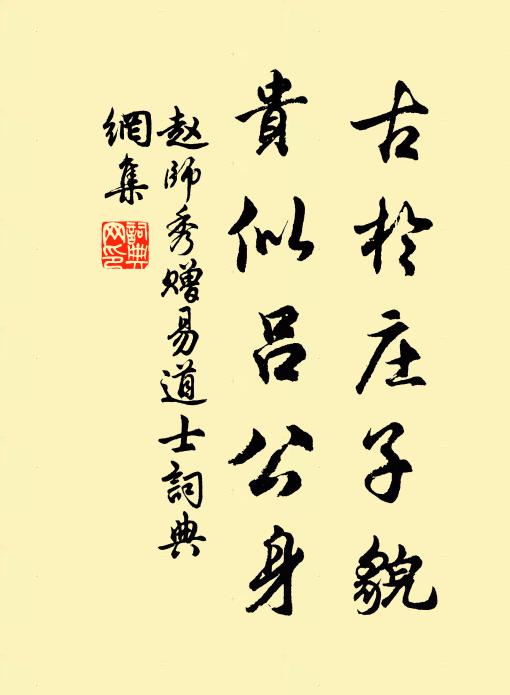 古於庄子貌
貴似吕公身
赵師秀贈易道士詞典
網集
詞典
网印